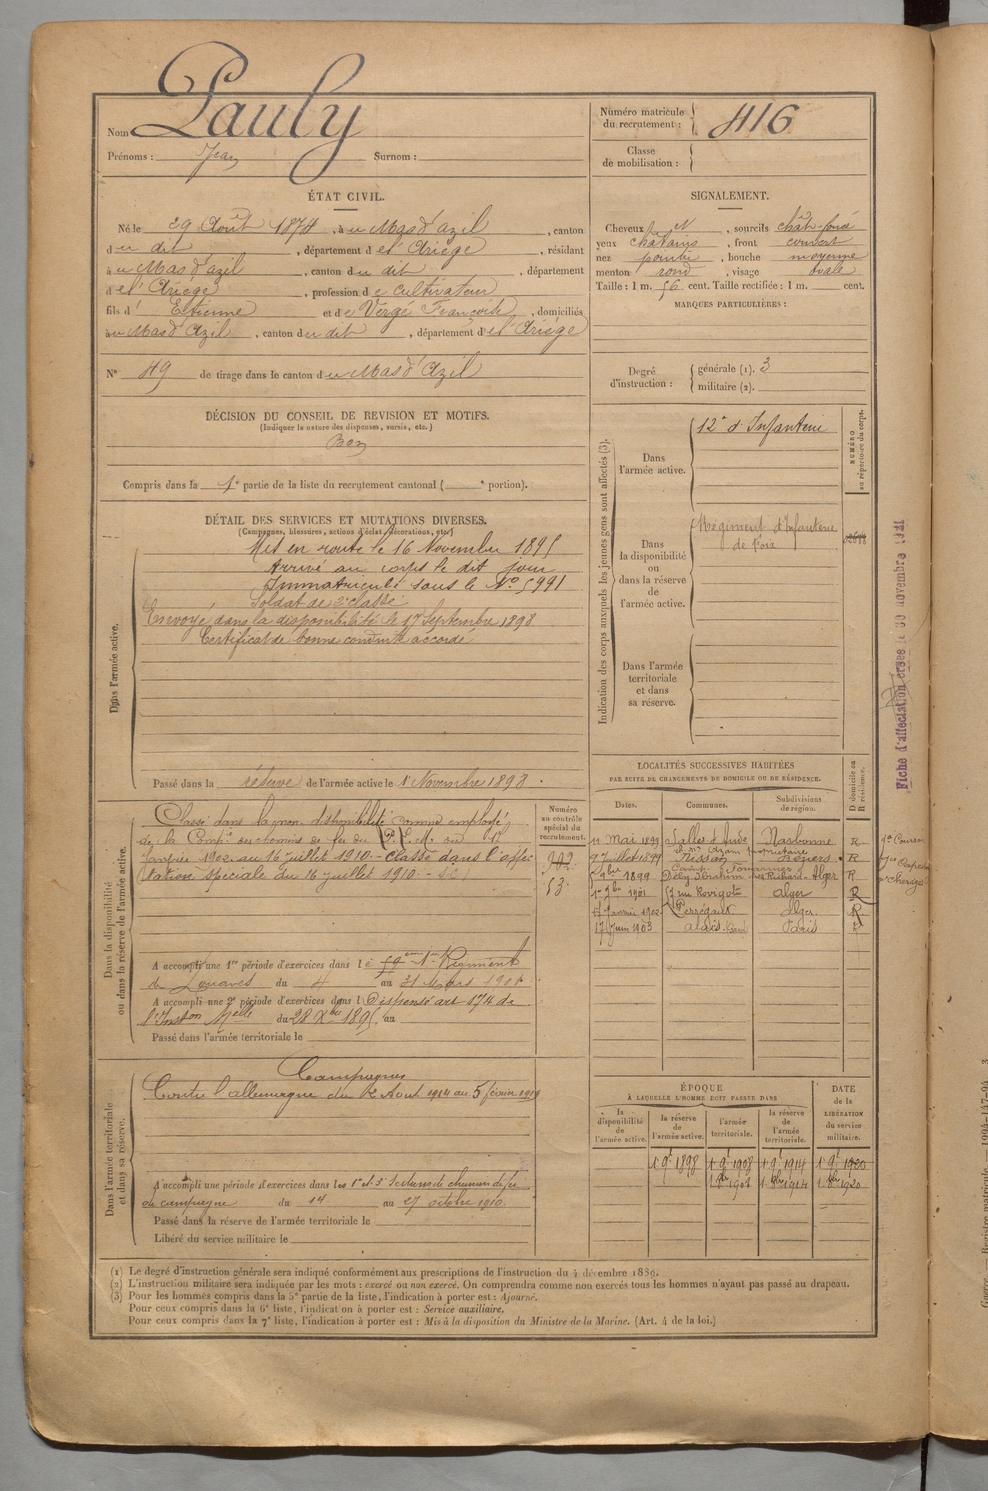 Nom Pauly
Prénoms : Jean Surnom :
Numéro matricule du recrutement : 416
Classe de mobilisation :
ÉTAT CIVIL.
Né le 29 Août 1874, à u Mas d'azil, canton
d u dit, département d e l'Ariège, résidant
à u Mas d'azil, canton d u dit, département
d e l'Ariège, profession d e cultivateur
fils d' Etienne et d e Verge Françoise, domiciliés
à u Mas d'Azil, canton d u dit, département d e l'Ariège
N° 49 de tirage dans le canton d u Mas d'Azil
DÉCISION DU CONSEIL DE REVISION ET MOTIFS.
(Indiquer la nature des dispenses, sursis, etc.)
Bon
Compris dans la 1e partie de la liste du recrutement cantonal ( e portion).
SIGNALEMENT.
Cheveux , sourcils chât-foncé
yeux chatains, front couvert
nez pointu, bouche moyenne
menton rond, visage ovale
Taille : 1 m. 56 cent. Taille rectifiée : 1 m. cent.
MARQUES PARTICULIÈRES :
Degré d'instruction : générale (1). 3
militaire (2).
Indication des corps auxquels les jeunes gens sont affectés (3).
NUMÉRO au répertoire du corps.
Dans l'armée active. 12e d'Infanterie
Dans la disponibilité ou dans la réserve de l'armée active. Régiment d'Infanterie
de Foix
Dans l'armée territoriale et dans sa réserve.
DÉTAIL DES SERVICES ET MUTATIONS DIVERSES.
(Campagnes, blessures, actions d'éclat, décorations, etc.)
Dans l'armée active.
Mis en route le 16 Novembre 1895
Arrivé au corps le dit jour
Immatriculé sous le N° 5991
Soldat de 2e classe
Envoyé dans la disponibilité le 17 Septembre 1898
Certificat de bonne conduite accordé
Passé dans la réserve de l'armée active le 1er Novembre 1898
Dans la disponibilité ou dans la réserve de l'armée active.
Numéro au contrôle spécial du recrutement.
Classé dans la non disponibilité comme employé
de la Compie des chemins de fer du P. L. M. du 17
Janvier 1902 au 16 juillet 1910 - Classé dans l'affec
tation spéciale du 16 juillet 1910 -
902
53
A accompli une 1re période d'exercices dans l e 1er Régiment
de Zouaves du 4 au 31 Mars 1901
A accompli une 2e période d'exercices dans l Dispensé art 174 de
l'Inston Melle du 28 Xbre 1895 au
Passé dans l'armée territoriale le
Dans l'armée territoriale et dans sa réserve.
Campagnes
Contre l'allemagne du 2 Aout 1914 au 5 février 1919
A accompli une période d'exercices dans les 1e et 3e Sections de chemin de fer
de campagne du 14 au 27 octobre 1910.
Passé dans la réserve de l'armée territoriale le
Libéré du service militaire le
LOCALITÉS SUCCESSIVES HABITÉES
PAR SUITE DE CHANGEMENTS DE DOMICILE OU DE RÉSIDENCE.
Dates. Communes. Subdivisions de région. D domicile ou R résidence.
11 Mai 1899 Salles d'Aude Narbonne R
7 Juillet 1899 Nissan Béziers R
9bre 1899 Dély Ibrahim Alger R
9bre 1901 rue Rovigo Alger R
17 Janvier 1902 Perrégaux Alger R
17 Juin 1903 Paris
ÉPOQUE
À LAQUELLE L'HOMME DOIT PASSER DANS
la disponibilité de l'armée active. la réserve de l'armée active. l'armée territoriale. la réserve de l'armée territoriale. DATE de la LIBÉRATION du service militaire.
1 9e 1898 1 9e 1908 1 9e 1914 1 9e 1920
1908 1914 1920
Fiche d'affectation créée le 30 novembre 1921
(1) Le degré d'instruction générale sera indiqué conformément aux prescriptions de l'instruction du 4 décembre 1889.
(2) L'instruction militaire sera indiquée par les mots : exercé ou non exercé. On comprendra comme non exercés tous les hommes n'ayant pas passé au drapeau.
(3) Pour les hommes compris dans la 5e partie de la liste, l'indication à porter est : Ajourné.
Pour ceux compris dans la 6e liste, l'indication à porter est : Service auxiliaire.
Pour ceux compris dans la 7e liste, l'indication à porter est : Mis à la disposition du Ministre de la Marine. (Art. 4 de la loi.)